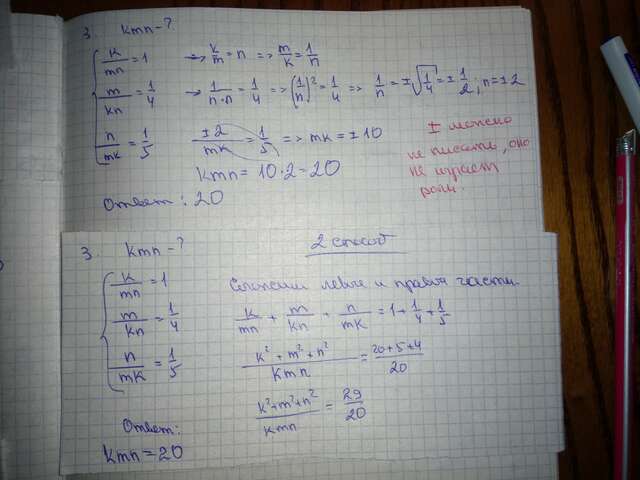 3. kmn - ?
k/mn = 1 => k/m = n => m/k = 1/n
m/kn = 1/4 -> 1/(n·n) = 1/4 => (1/n)² = 1/4 => 1/n = ±√(1/4) = ±1/2; n = ±2
n/mk = 1/5 ±2/mk = 1/5 => mk = ±10
kmn = 10·2 = 20
Ответ: 20
± можно
не писать, оно
не играет
роли.
3. kmn - ? 2 способ
k/mn = 1 Сложим левые и правые части.
m/kn = 1/4 k/mn + m/kn + n/mk = 1 + 1/4 + 1/5
n/mk = 1/5 (k² + m² + n²)/kmn = (20+5+4)/20
(k²+m²+n²)/kmn = 29/20
Ответ:
kmn = 20